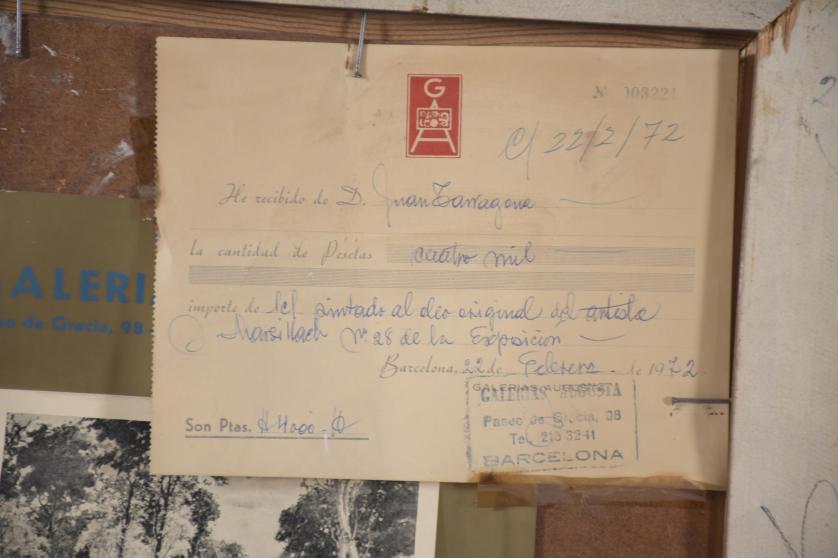 G
Nº 003221
C/ 22/2/72
He recibido de D. Juan Tarragona
la cantidad de Pesetas cuatro mil
importe de pintado al oleo original del artista
Marsillach nº 28 de la Exposición
Barcelona, 22 de Febrero de 1972
GALERIAS AUGUSTA
Paseo de Gracia, 98
Tel. 218 32 11
BARCELONA
Son Ptas. # 4000.- #
GALERI
o de Gracia, 98
2